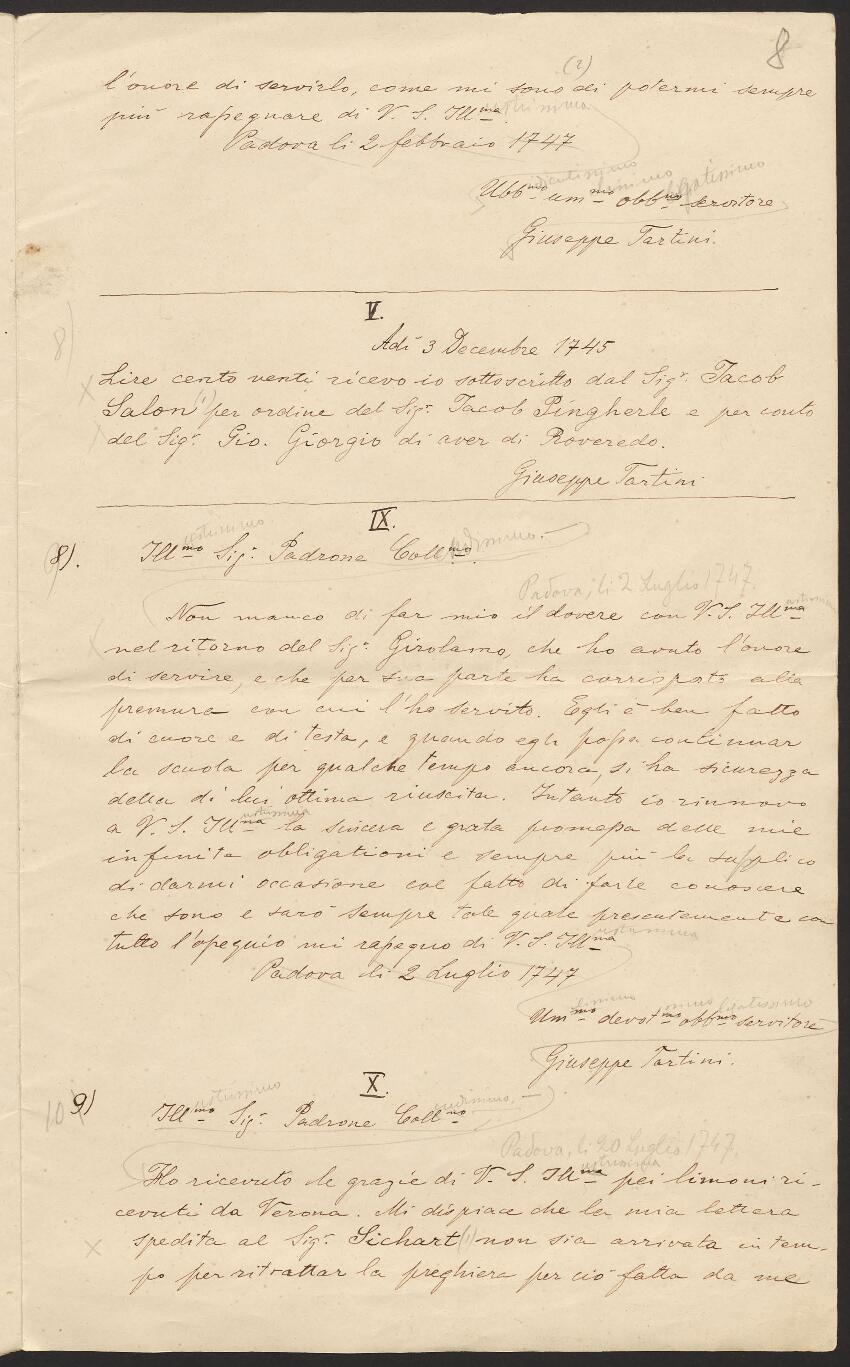 8
(2)
l'onore di servirlo, come mi sono di potermi sempre
più rassegnare di V. S. Ill.ma
Padova li 2 febbraio 1747
Ubb.mo um.mo obb.mo servitore
Giuseppe Tartini.
V.
8)
Adi 3 Decembre 1745
Lire cento venti ricevo io sottoscritto dal Sig.r Jacob
Salon (1) per ordine del Sig.r Jacob Pingherle e per conto
del Sig.r Gio. Giorgio di aver di Roveredo.
Giuseppe Tartini
IX.
8). Ill.mo Sig.r Padrone Coll.mo
Padova, li 2 Luglio 1747.
Non manco di far mio il dovere con V. S. Ill.ma
nel ritorno del Sig.r Girolamo, che ho avuto l'onore
di servire, e che per sua parte ha corrisposto alla
premura con cui l'ho servito. Egli è ben fatto
di cuore e di testa, e quando egli possa continuar
la scuola per qualche tempo ancora, si ha sicurezza
della di lui ottima riuscita. Intanto io rinnovo
a V. S. Ill.ma la sincera e grata promessa delle mie
infinite obligationi e sempre più la supplico
di darmi occasione col fatto di farle conoscere
che sono e sarò sempre tale quale presentemente con
tutto l'ossequio mi rassegno di V. S. Ill.ma
Padova li 2 Luglio 1747
Um.mo devot.mo obb.mo servitore
Giuseppe Tartini.
X.
10) 9) Ill.mo Sig.r Padrone Coll.mo
Padova, li 20 Luglio 1747.
Ho ricevuto le grazie di V. S. Ill.ma pei limoni ri-
cevuti da Verona. Mi dispiace che la mia lettera
spedita al Sig.r Sichart (1) non sia arrivata in tem-
po per ritrattar la preghiera per ciò fatta da me